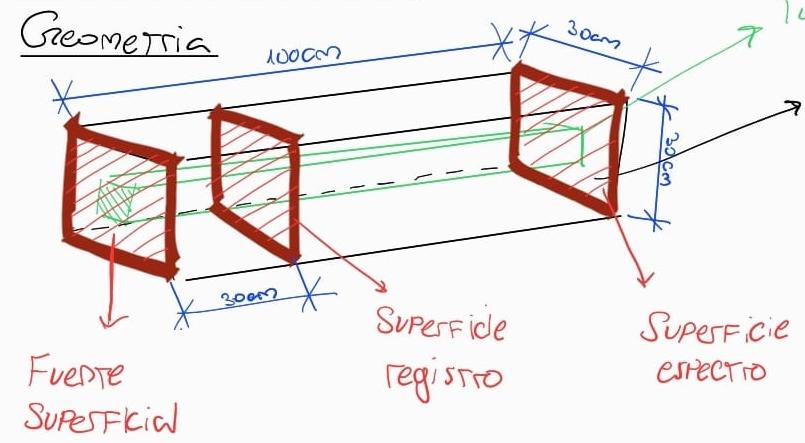 Geometria
100cm
30cm
30cm
30cm
Fuente
Superficial
Superficie
registro
Superficie
espectro